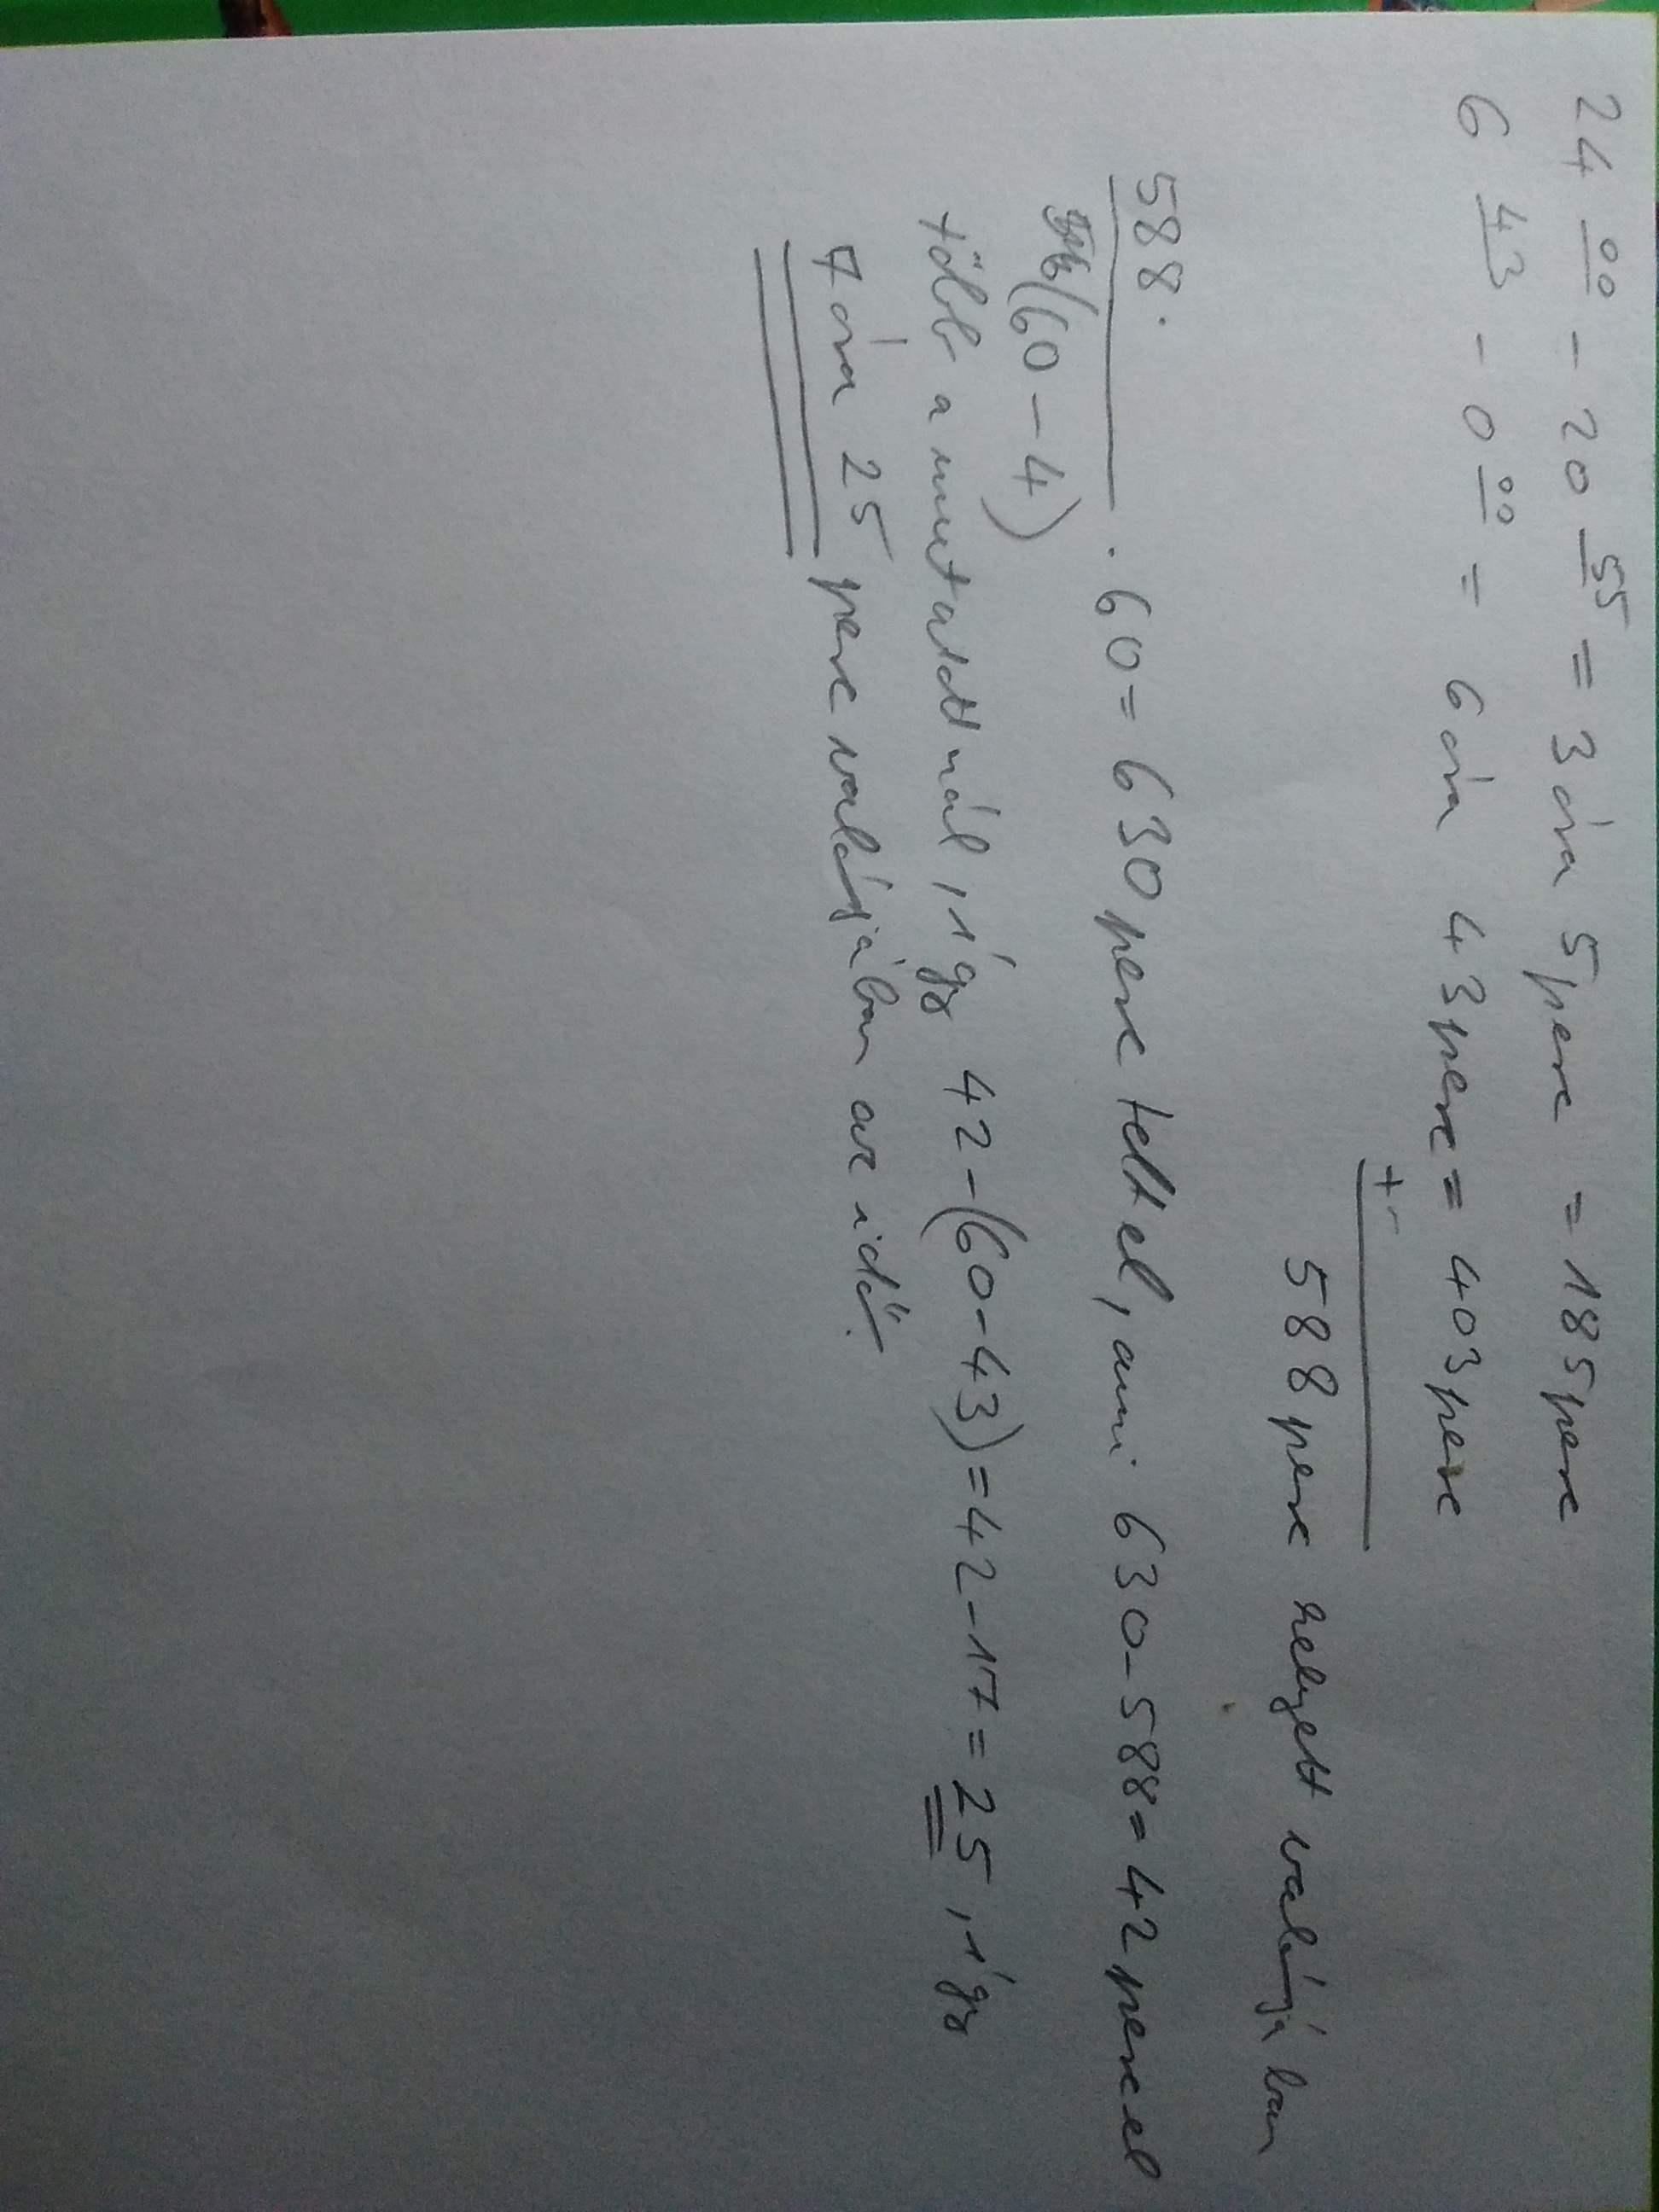 24 00 - 20 55 = 3 óra 5 perc = 185 perc
6 43 - 0 00 = 6 óra 43 perc = 403 perc
+
588 perc helyett valójában
588 · 60 = 630 perc telt el, ami 630-588=42 perccel
(60-4)
több a mutatottnál, így 42-(60-43)=42-17=25, így
7 óra 25 perc valójában az idő.